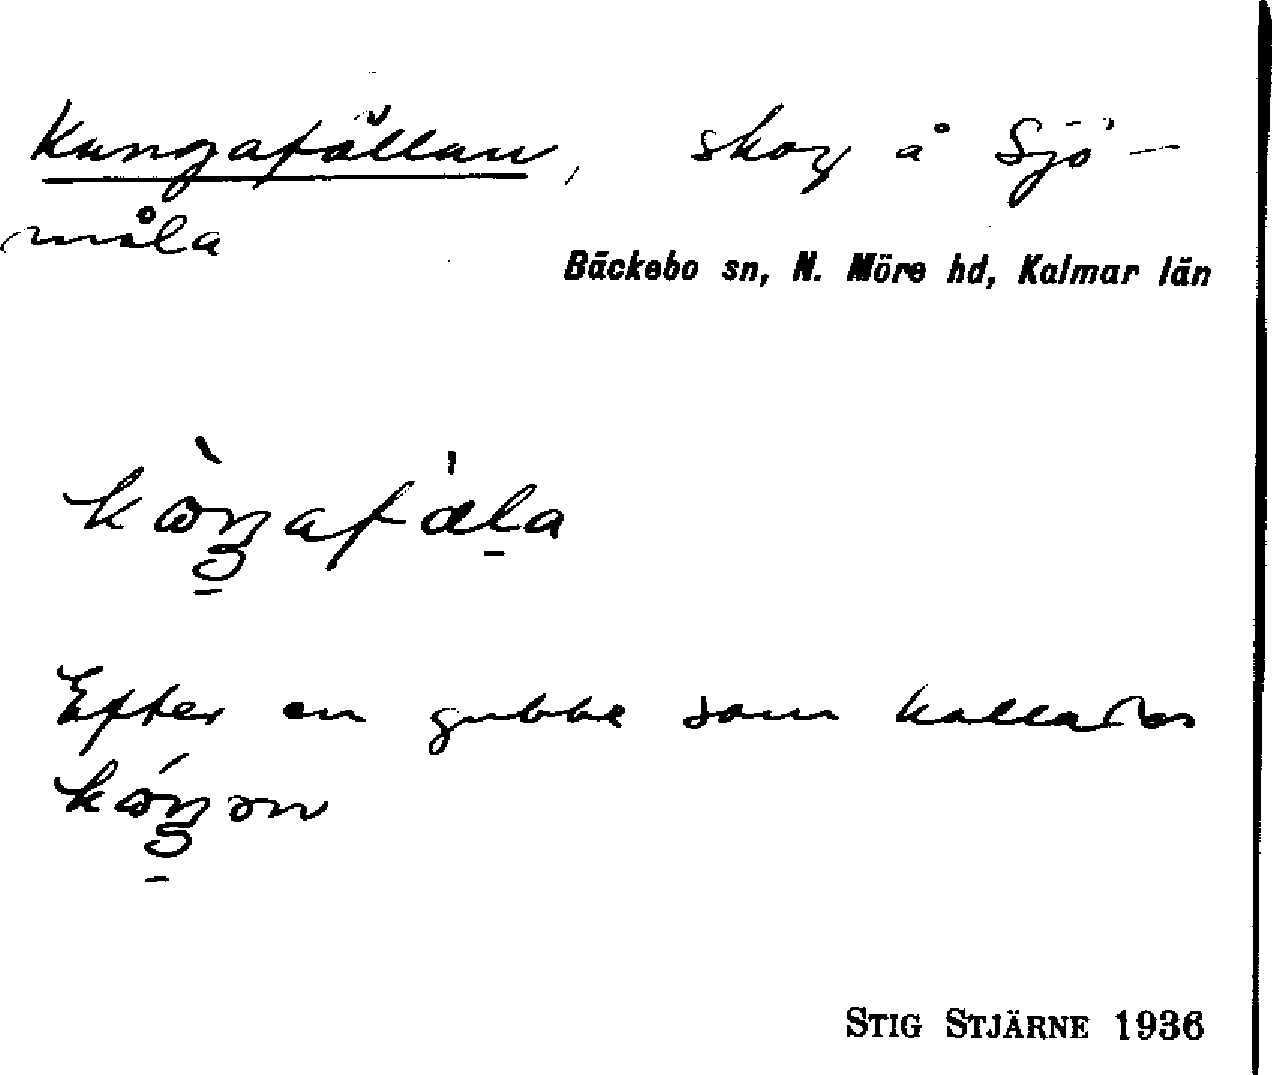 Kungafällan, skog å Sjö-
måla
Bäckebo sn, N. Möre hd, Kalmar län
kò̱ŋafæ̍l̠a
Efter en gubbe som kallades
kóŋ̠ən
STIG STJÄRNE 1936